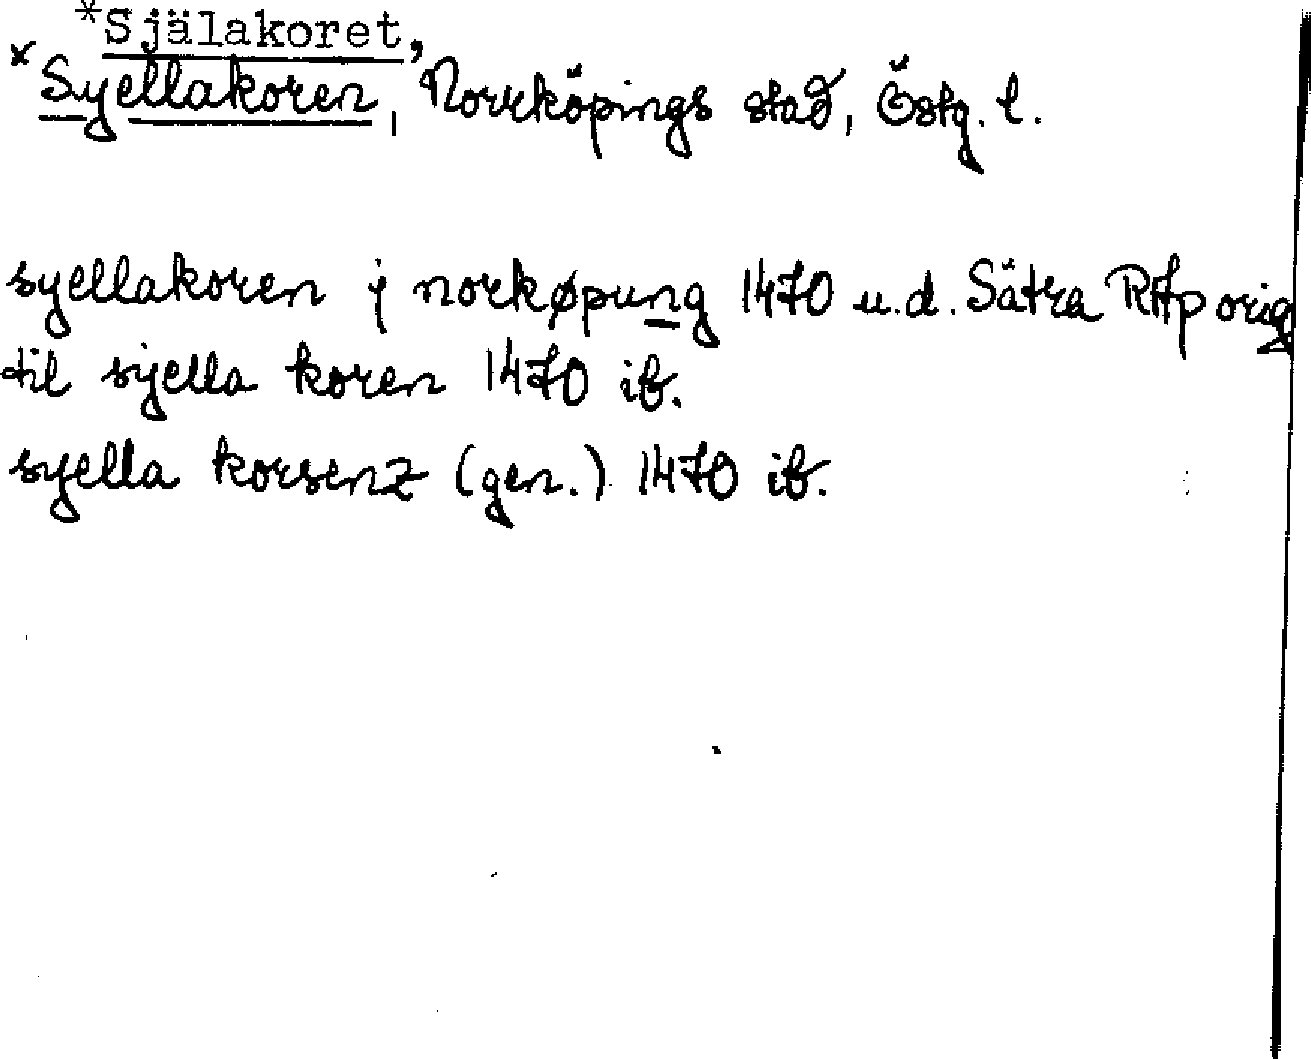 *Själakoret,
*Syellakoren, Norrköpings stad, Östg. l.
syellakoren j norkøpung 1470 u.d. Sätra RAp orig
til syella koren 1470 ib.
syella korsenz (gen.) 1470 ib.